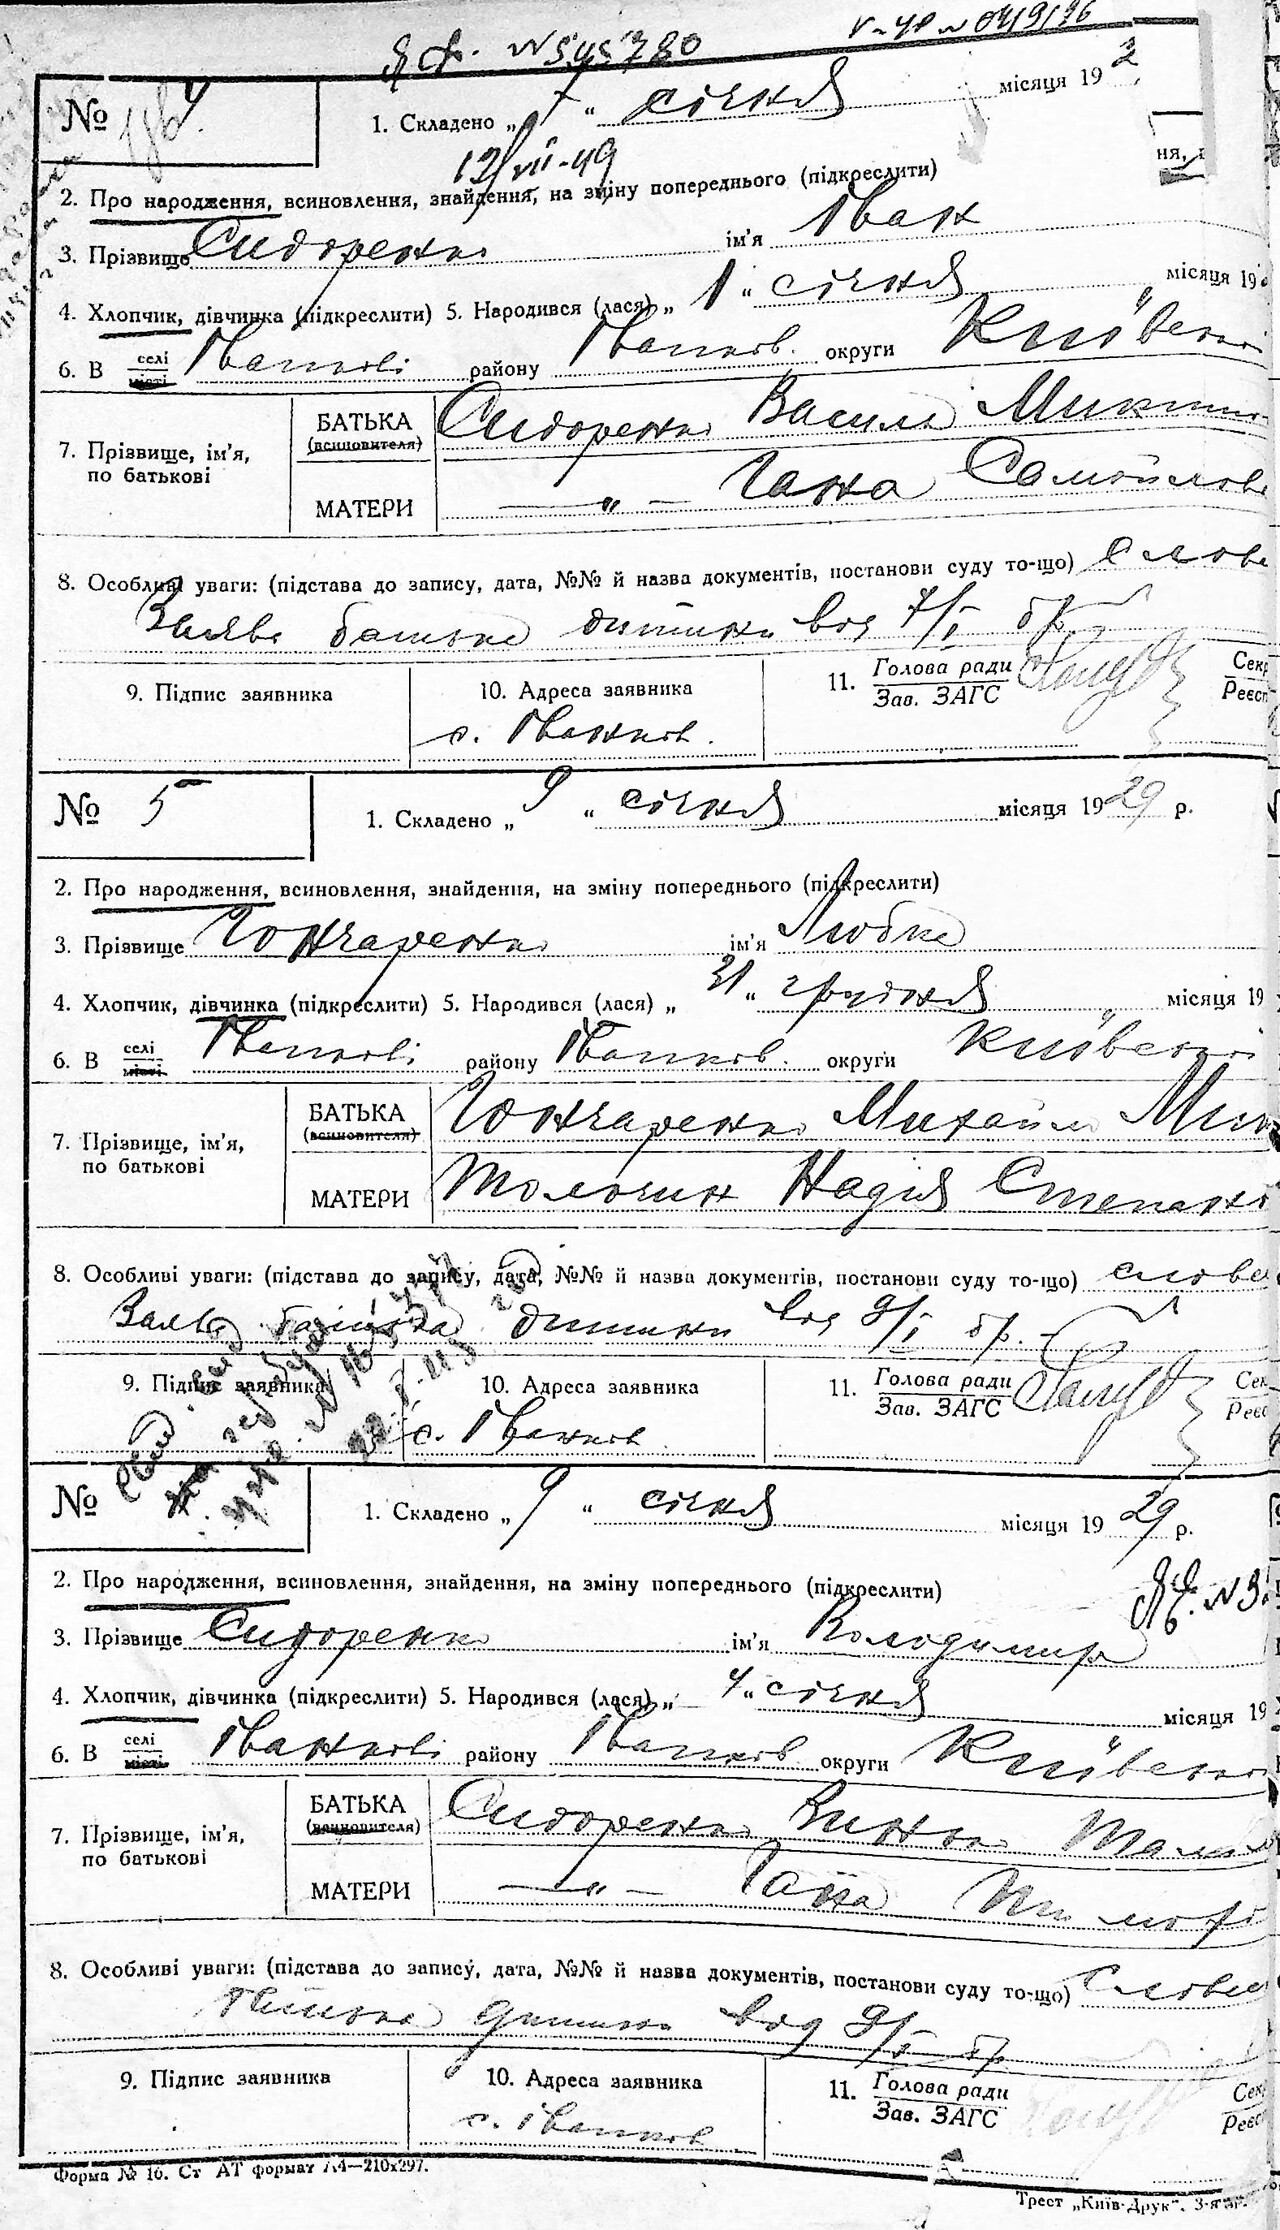 ЯФ. № 545780
№ 4
1. Складено „ 7 “ січня місяця 192
12/VII-49
2. Про народження, всиновлення, знайдення, на зміну попереднього (підкреслити)
3. Прізвище Сидоренко ім'я Іван
4. Хлопчик, дівчинка (підкреслити) 5. Народився (лася) „ 1 “ січня місяця 19
6. В селі місті Іванкові району Іванков. округи Київсько
7. Прізвище, ім'я, по батькові
БАТЬКА (всиновителя) Сидоренко Василь Микит
МАТЕРИ — „ — Гана Самойлов
8. Особливі уваги: (підстава до запису, дата, №№ й назва документів, постанови суду то-що) Слове
Заява батька дитини від 7/I бр.
9. Підпис заявника
10. Адреса заявника
с. Іванков.
11. Голова ради Зав. ЗАГС
Секр
Реєст
№ 5
1. Складено „ 9 “ січня місяця 1929 р.
2. Про народження, всиновлення, знайдення, на зміну попереднього (підкреслити)
3. Прізвище Гончаренко ім'я Любка
4. Хлопчик, дівчинка (підкреслити) 5. Народився (лася) „ 31 “ грудня місяця 19
6. В селі місті Іванкові району Іванков. округи Київсько
7. Прізвище, ім'я, по батькові
БАТЬКА (всиновителя) Гончаренко Михайло Мик
МАТЕРИ Толочин Надія Степан
8. Особливі уваги: (підстава до запису, дата, №№ й назва документів, постанови суду то-що) слове
Заява батька дитини від 9/I бр.
9. Підпис заявника
10. Адреса заявника
с. Іванков
11. Голова ради Зав. ЗАГС
Сек
Реєс
№
1. Складено „ 9 “ січня місяця 1929 р.
2. Про народження, всиновлення, знайдення, на зміну попереднього (підкреслити)
3. Прізвище Сидоренко ім'я Володимир
4. Хлопчик, дівчинка (підкреслити) 5. Народився (лася) „ 4 “ січня місяця 19
6. В селі місті Іванкові району Іванков округи Київсько
7. Прізвище, ім'я, по батькові
БАТЬКА (всиновителя) Сидоренко
МАТЕРИ — „ — Ганна
8. Особливі уваги: (підстава до запису, дата, №№ й назва документів, постанови суду то-що) Слове
батька дитини від 9/I бр
9. Підпис заявника
10. Адреса заявника
с. Іванков
11. Голова ради Зав. ЗАГС
Секр
Реєс
Форма № 16. Ст АТ формат А4—210х297.
Трест „Київ-Друк“. 3-я